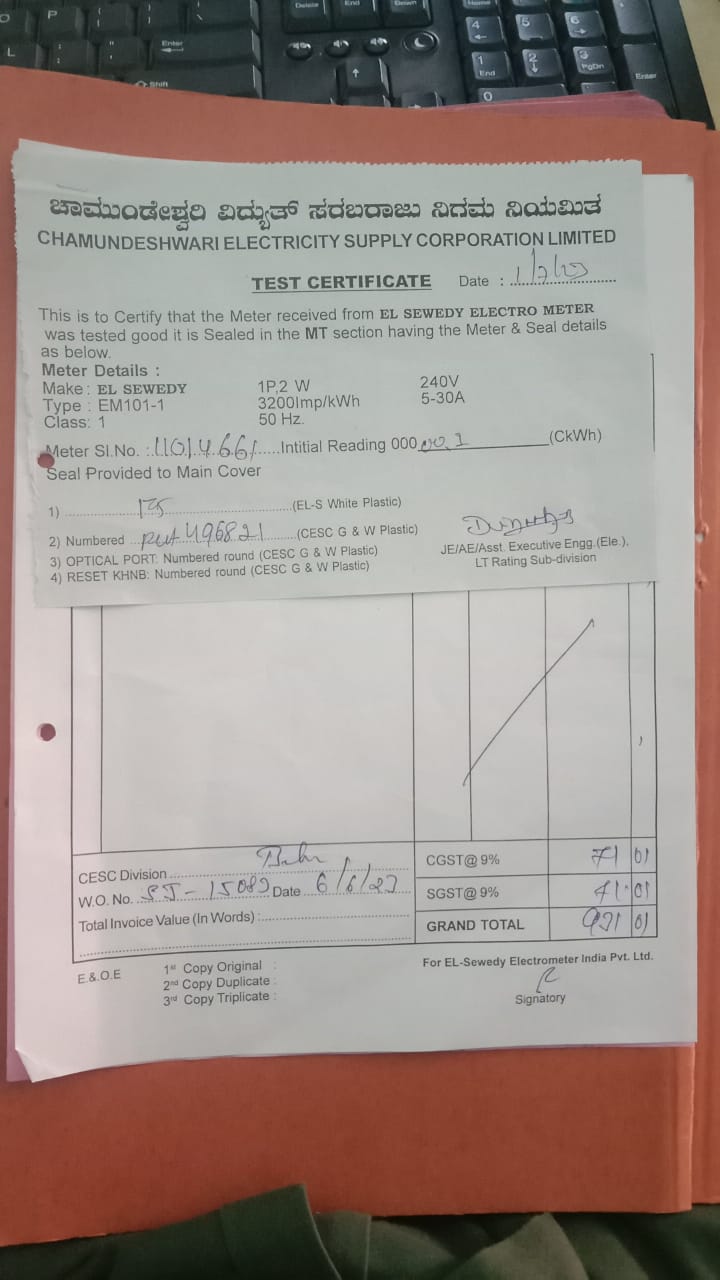 ಚಾಮುಂಡೇಶ್ವರಿ ವಿದ್ಯುತ್ ಸರಬರಾಜು ನಿಗಮ ನಿಯಮಿತ
CHAMUNDESHWARI ELECTRICITY SUPPLY CORPORATION LIMITED
TEST CERTIFICATE Date :
This is to Certify that the Meter received from EL SEWEDY ELECTRO METER
was tested good it is Sealed in the MT section having the Meter & Seal details
as below.
Meter Details :
Make : EL SEWEDY 1P,2 W 240V
Type : EM101-1 3200Imp/kWh 5-30A
Class: 1 50 Hz.
Meter Sl.No. : 11014661 Intitial Reading 000 00.1 (CkWh)
Seal Provided to Main Cover
1) (EL-S White Plastic)
2) Numbered 496821 (CESC G & W Plastic)
3) OPTICAL PORT: Numbered round (CESC G & W Plastic)
4) RESET KHNB: Numbered round (CESC G & W Plastic)
JE/AE/Asst. Executive Engg.(Ele.),
LT Rating Sub-division
CESC Division
CGST@ 9% 71 01
W.O. No. SJ-15089 Date 6/6/23
SGST@ 9% 71 01
Total Invoice Value (In Words) :
GRAND TOTAL 931 01
E.&.O.E
1st Copy Original :
2nd Copy Duplicate :
3rd Copy Triplicate :
For EL-Sewedy Electrometer India Pvt. Ltd.
Signatory